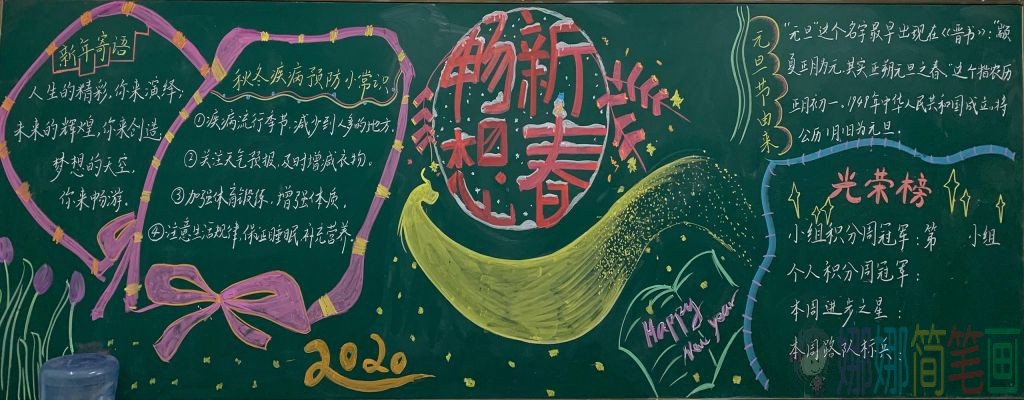 新年寄语
人生的精彩,你来演绎,
未来的辉煌,你来创造,
梦想的天空,
你来畅游.
秋冬疾病预防小常识.
①疾病流行季节,减少到人多的地方.
②关注天气预报,及时增减衣物。
③加强体育锻炼,增强体质。
④注意生活规律,保证睡眠,补充营养
畅想
新春
2020
Happy
New year
元旦节由来
"元旦"这个名字最早出现在《晋书》:"颛
夏正月为元,其实正朔元旦之春."这个指农历
正月初一,1949年中华人民共和国成立,将
公历1月1日为元旦.
光荣榜
小组积分周冠军:第 小组
个人积分周冠军:
本周进步之星:
本周路队标兵:
娜娜简笔画